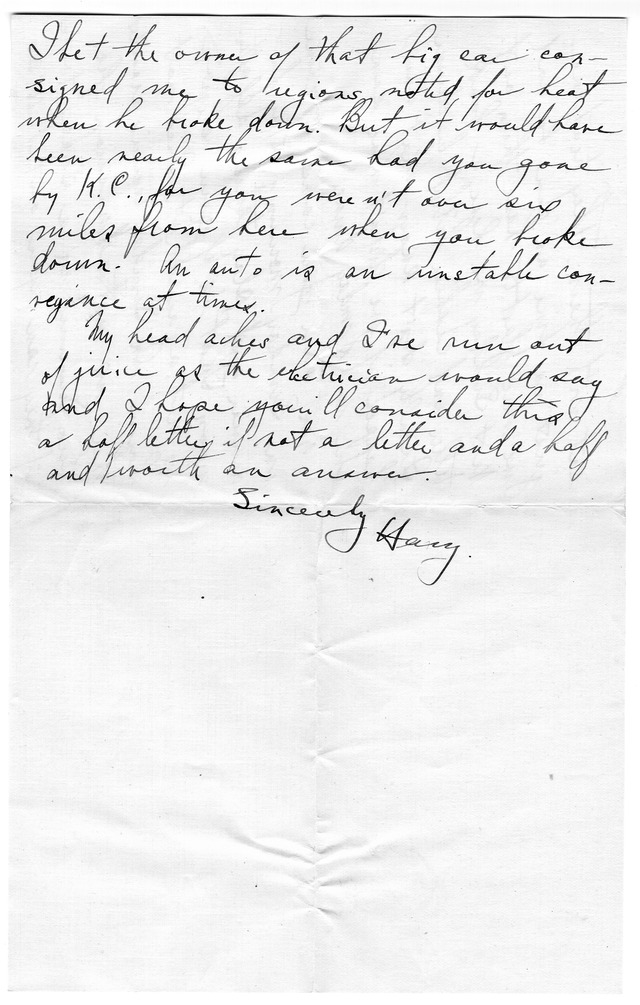 I bet the owner of that big car con-
signed me to regions noted for heat
when he broke down. But it would have
been nearly the same had you gone
by K.C., for you weren't over six
miles from here when you broke
down. An auto is an unstable con-
veyance at times.
My head aches and I've run out
of juice as the electrician would say
and I hope you'll consider this
a half letter if not a letter and a half
and worth an answer.
Sincerely
Harry.